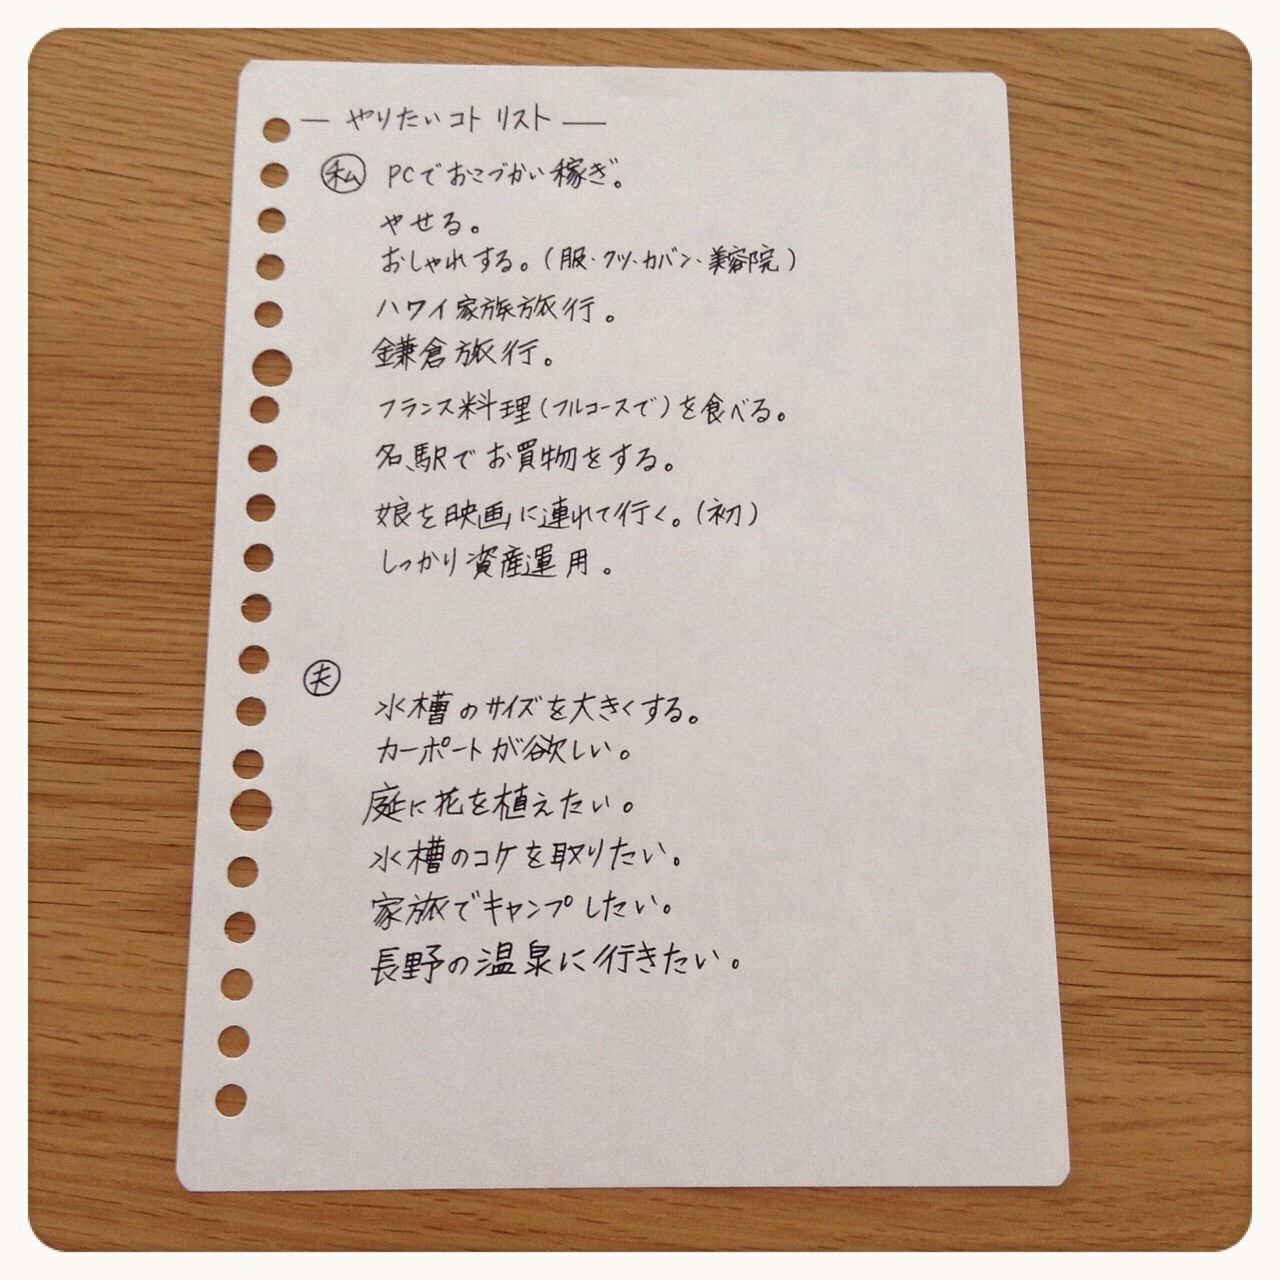 ― やりたいコト リスト ―
私 PCでおこづかい稼ぎ。
やせる。
おしゃれする。(服・クツ・カバン・美容院)
ハワイ家族旅行。
鎌倉旅行。
フランス料理(フルコースで)を食べる。
名駅でお買物をする。
娘を映画に連れて行く。(初)
しっかり資産運用。
夫
水槽のサイズを大きくする。
カーポートが欲しい。
庭に花を植えたい。
水槽のコケを取りたい。
家族でキャンプしたい。
長野の温泉に行きたい。